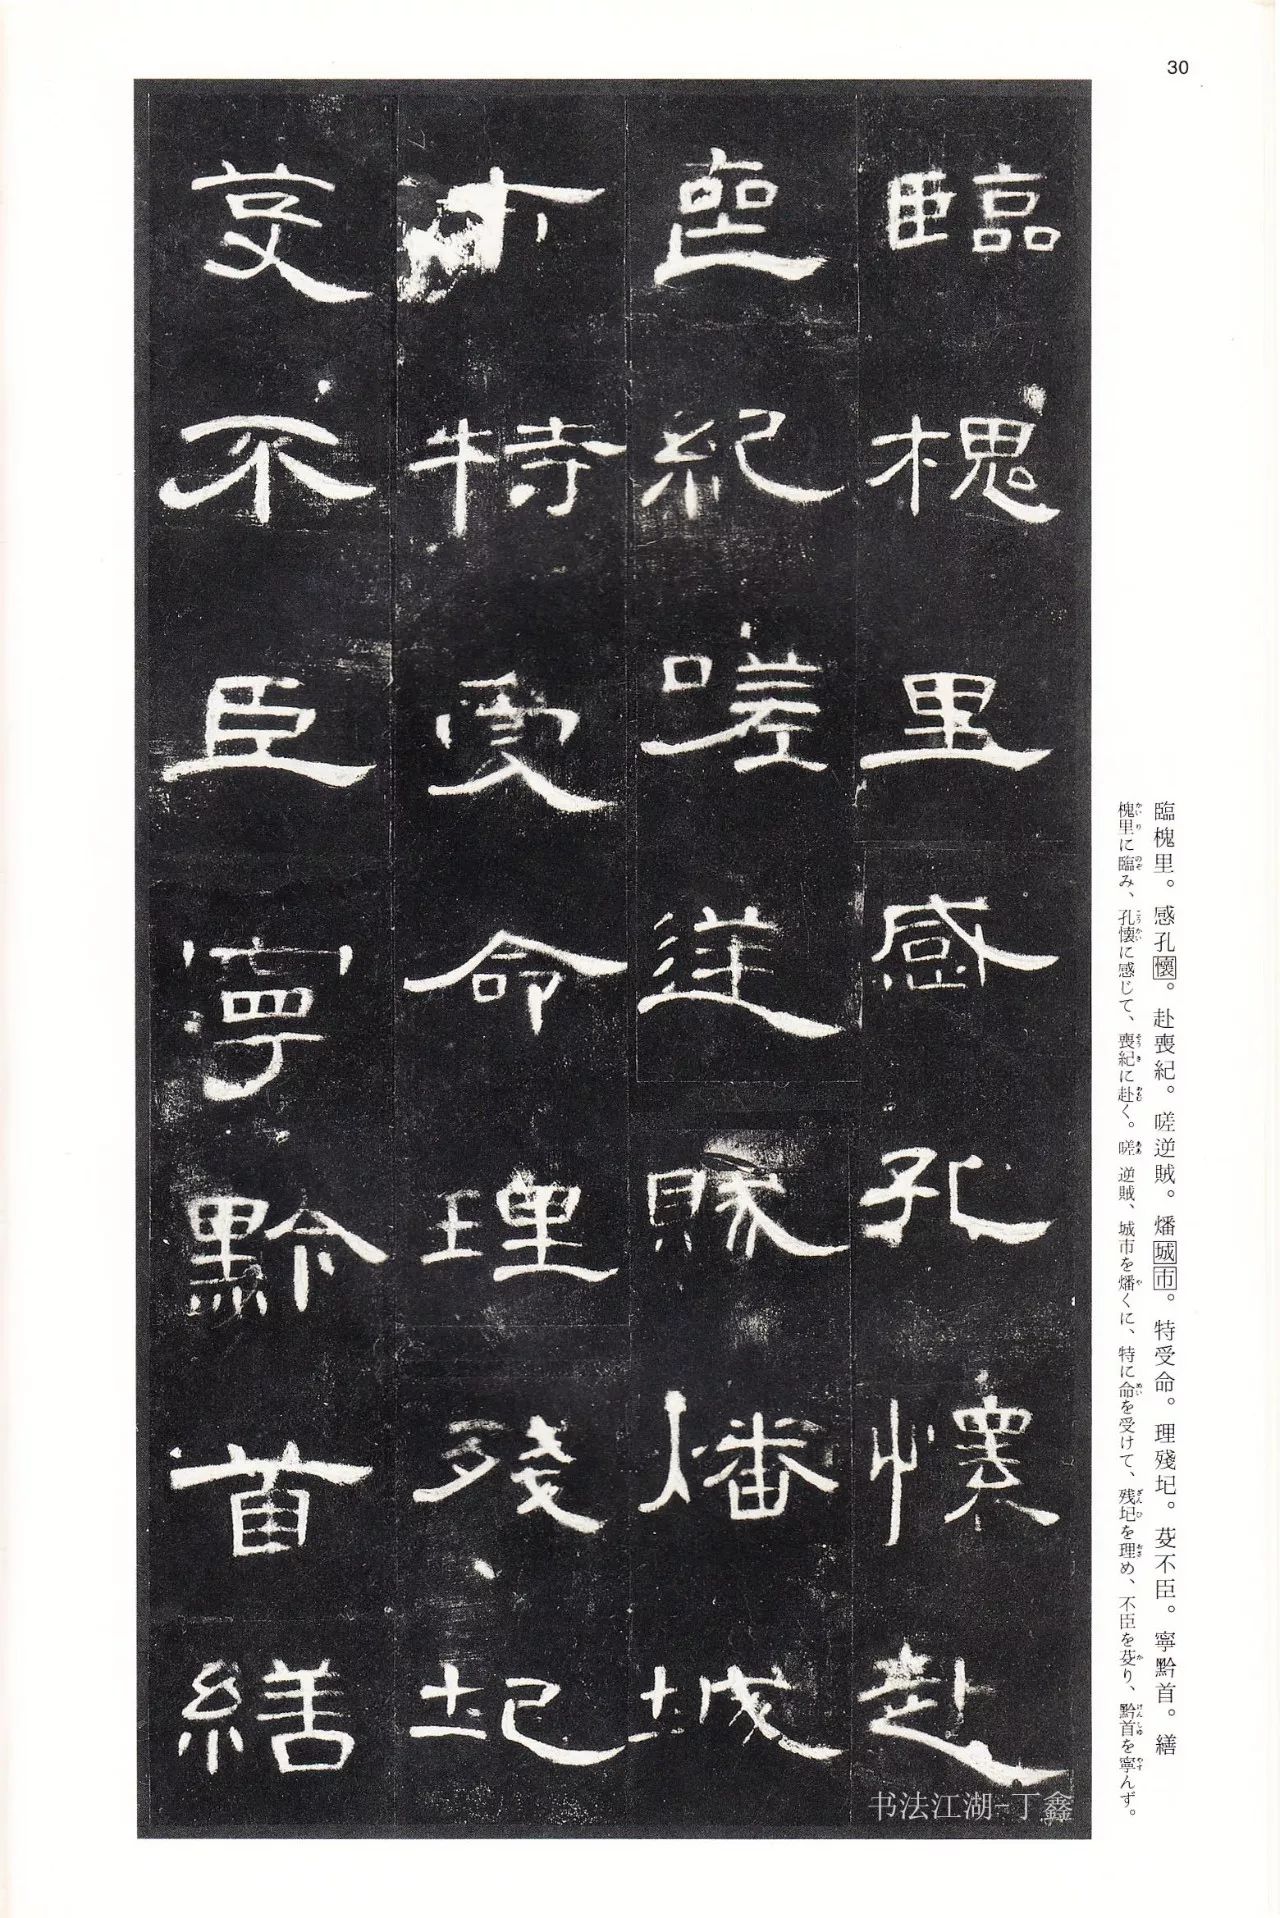 30
臨槐里感孔懷赴
喪紀嗟逆賊燔城
市特受命理殘圮
芟不臣寧黔首繕
臨槐里。感孔懷。赴喪紀。嗟逆賊。燔城市。特受命。理殘圮。芟不臣。寧黔首。繕
槐里に臨み、孔懐に感じて、喪紀に赴く。嗟 逆賊、城市を燔くに、特に命を受けて、残圮を理め、不臣を芟り、黔首を寧んず。
书法江湖-丁鑫